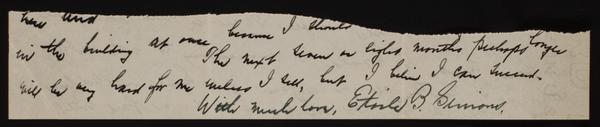 and
in the building at once because I should
The next seven or eight months perhaps longer
will be very hard for me unless I sell, but I believe I can succeed.
With much love, Etoile B. Simons.